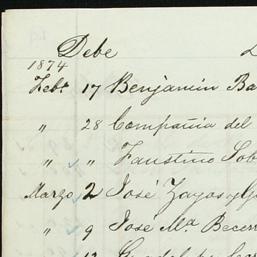 Debe
1874
Feb.º 17 Benjamin Ba
" 28 Compañia del
" " Faustino Sob
Marzo 2 José Zayas y G
" 9 José Mª Becerr